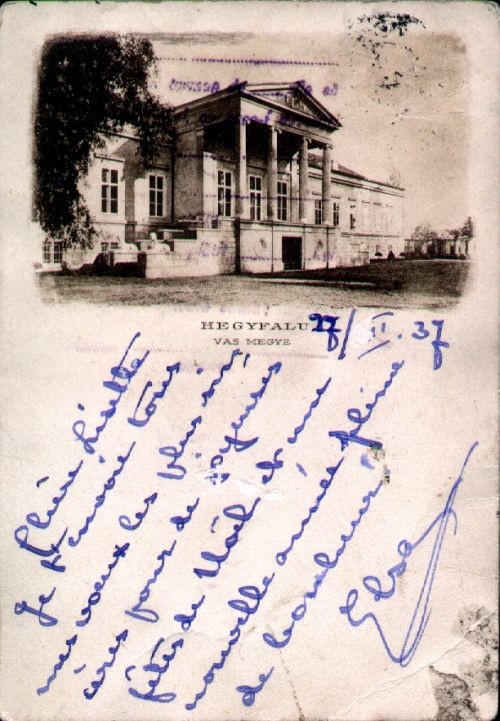 HEGYFALU
VAS MEGYE
27/II. 37
Chère Lisette
Je t'envoie tous
mes voeux les plus sin
cères pour de joyeuses
fêtes de Noël et une
nouvelle année pleine
de bonheur!
Elsa